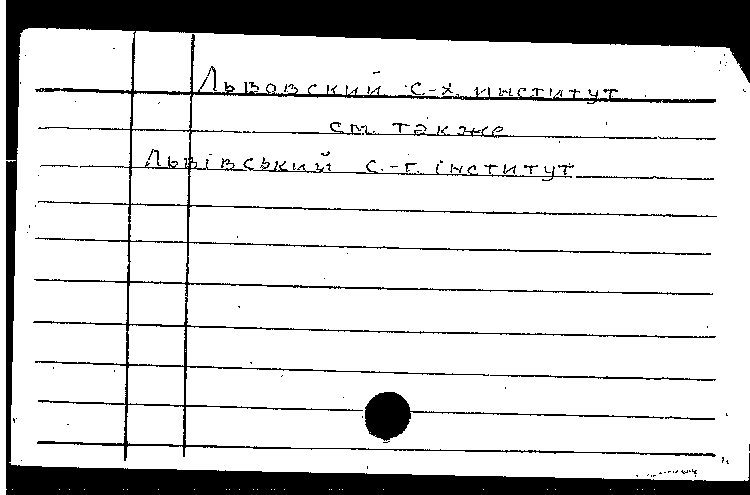 Львовский с-х. институт
см. также
Львівський с.-г. інститут